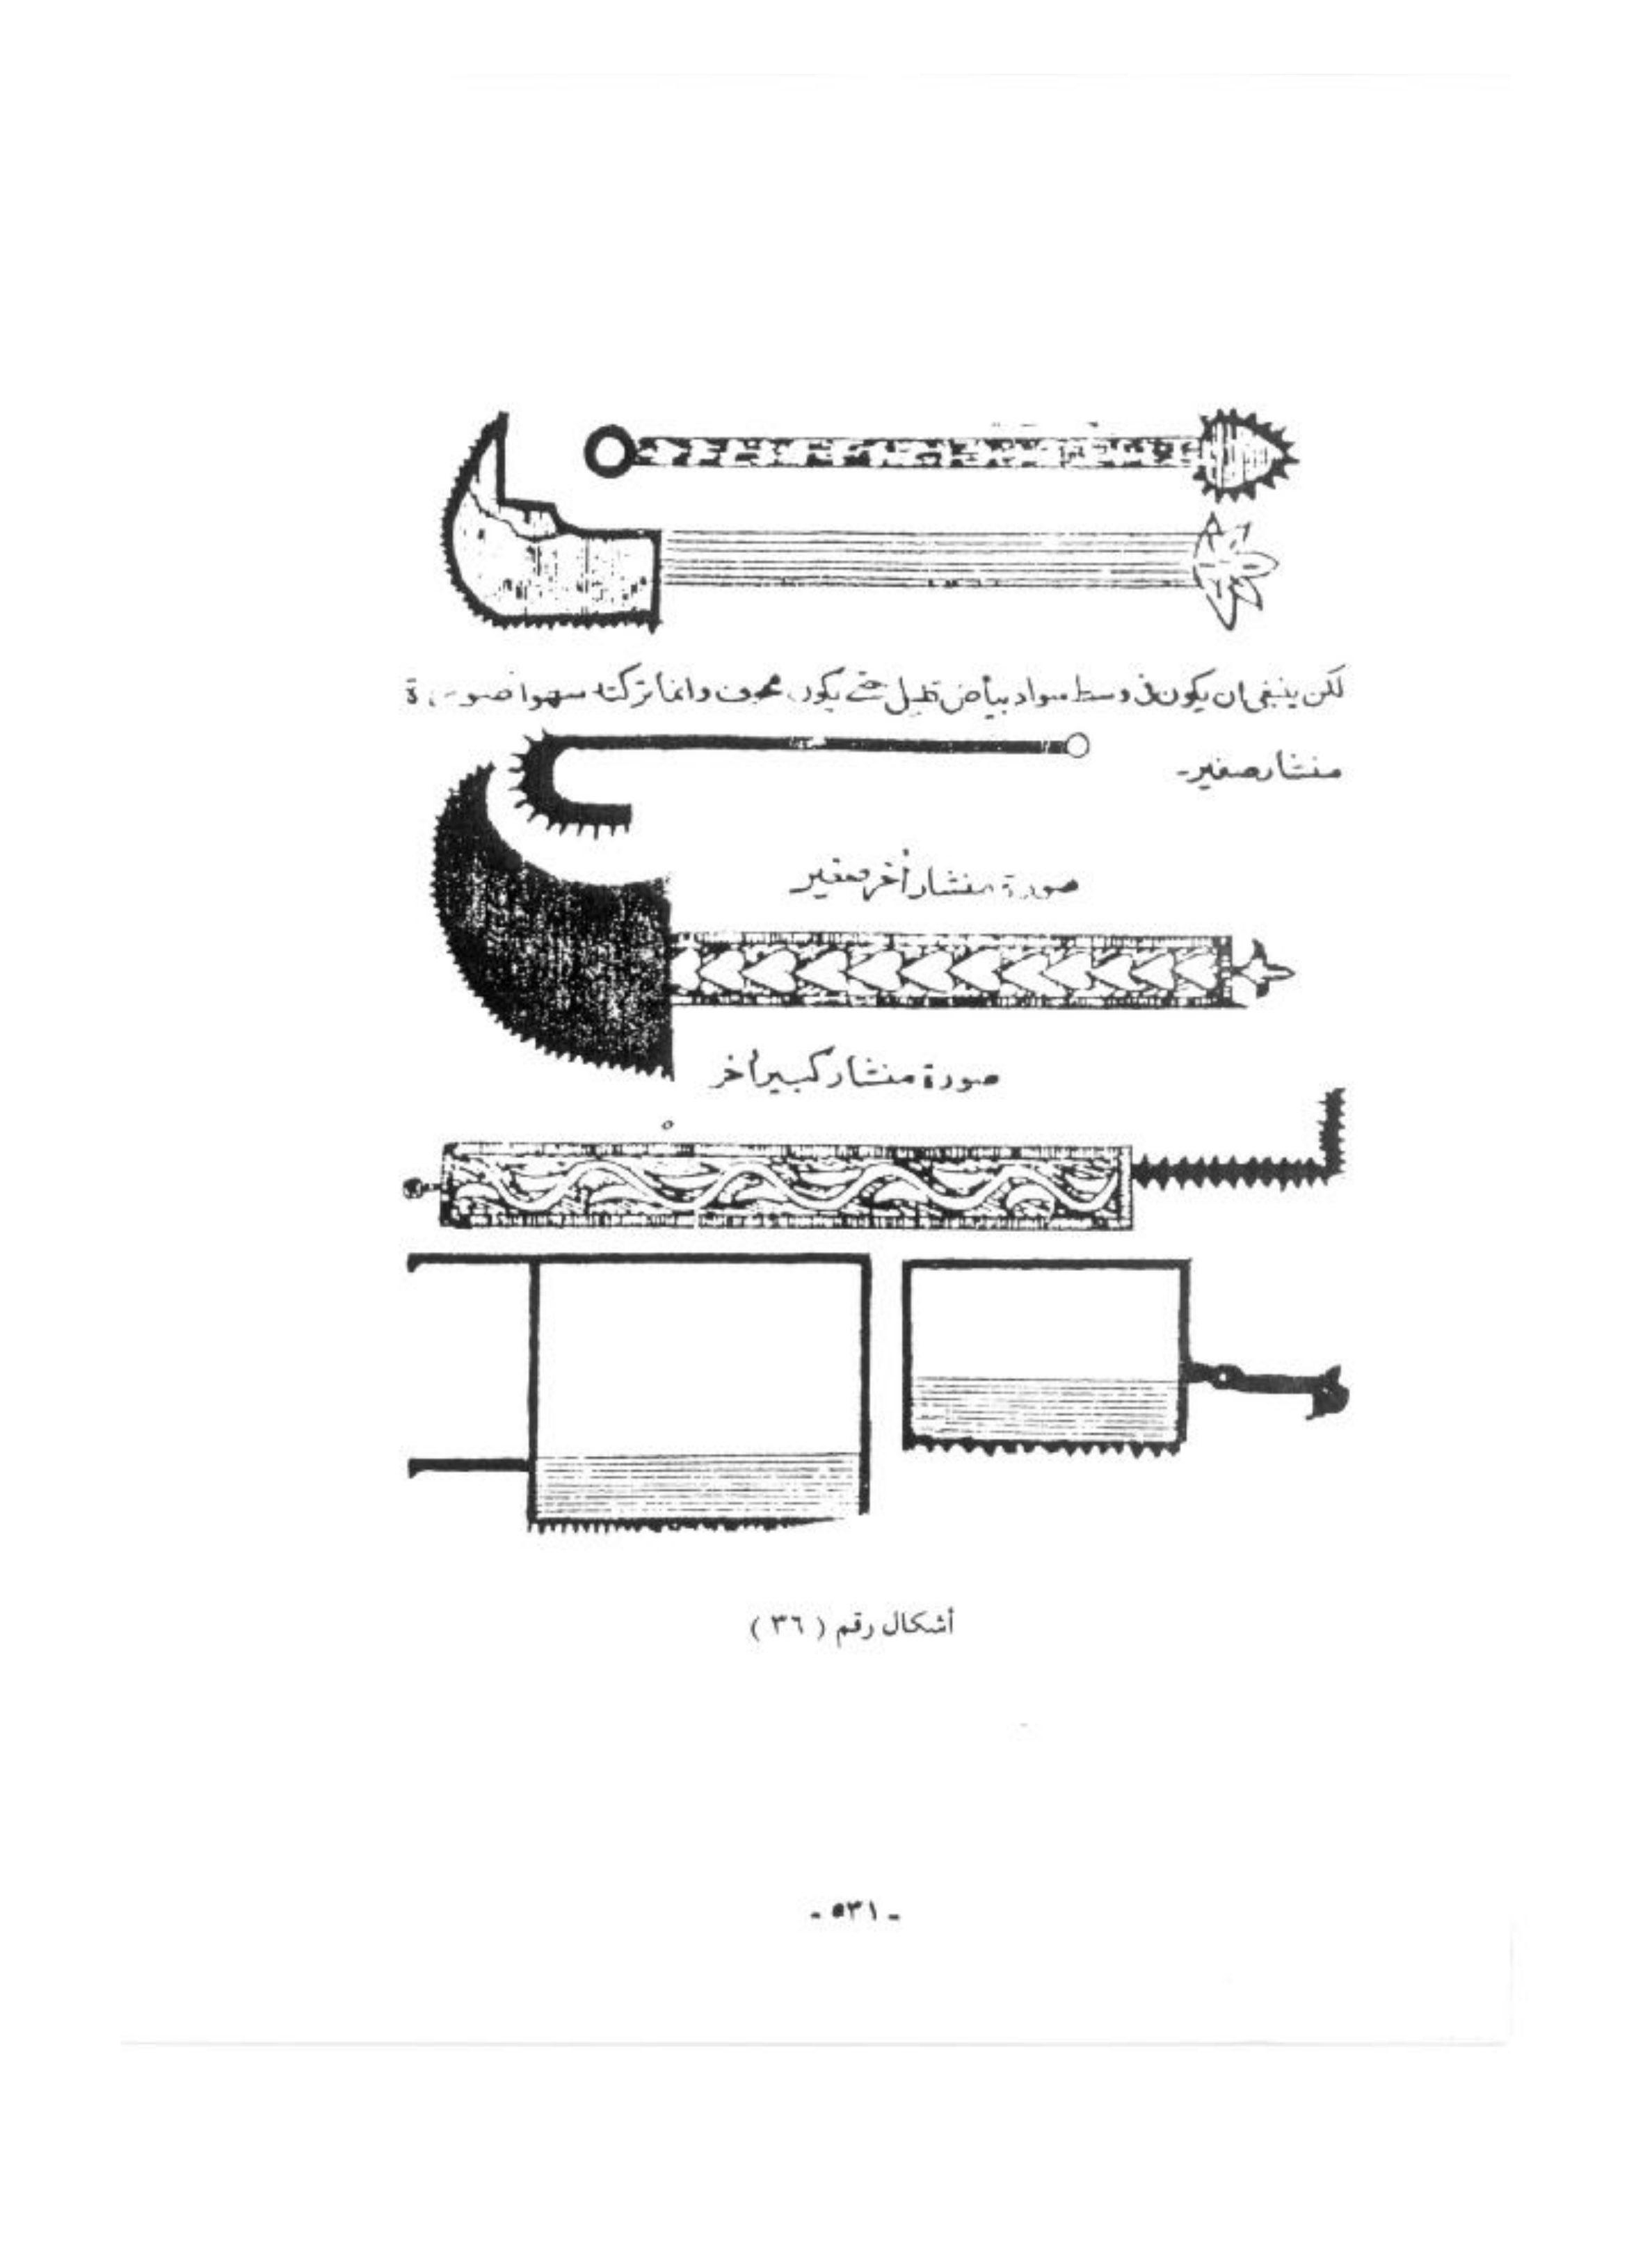 لكن ينبغى ان يكون فى وسط سواد بياض قليل حتى يكون مجوف وانما تركنا سهوا
منشار صغير-
صورة منشار أخر صغير
صورة منشار كبير أخر
أشكال رقم ( ٣٦ )
- ٥٣١ -